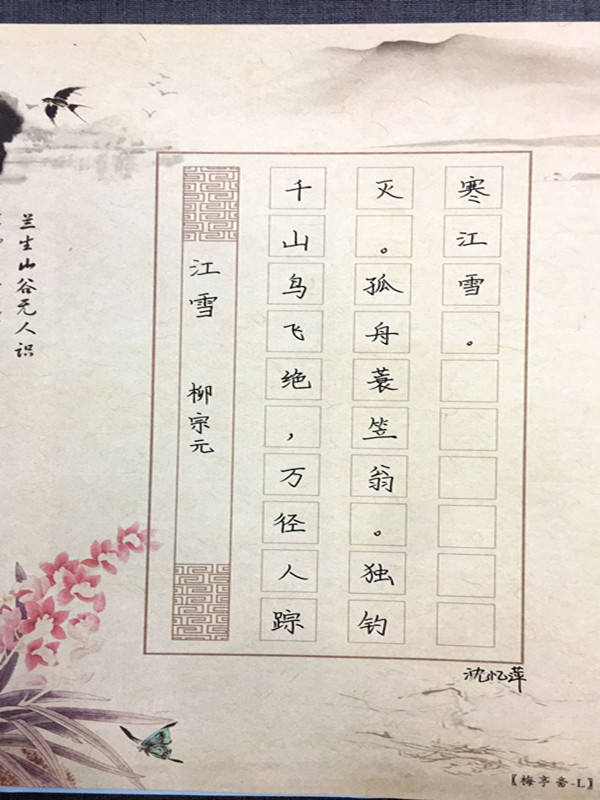 兰生山谷无人识
江雪 柳宗元
千山鸟飞绝，万径人踪
灭。孤舟蓑笠翁。独钓
寒江雪。
沈忆萍
【梅亭斋-L】